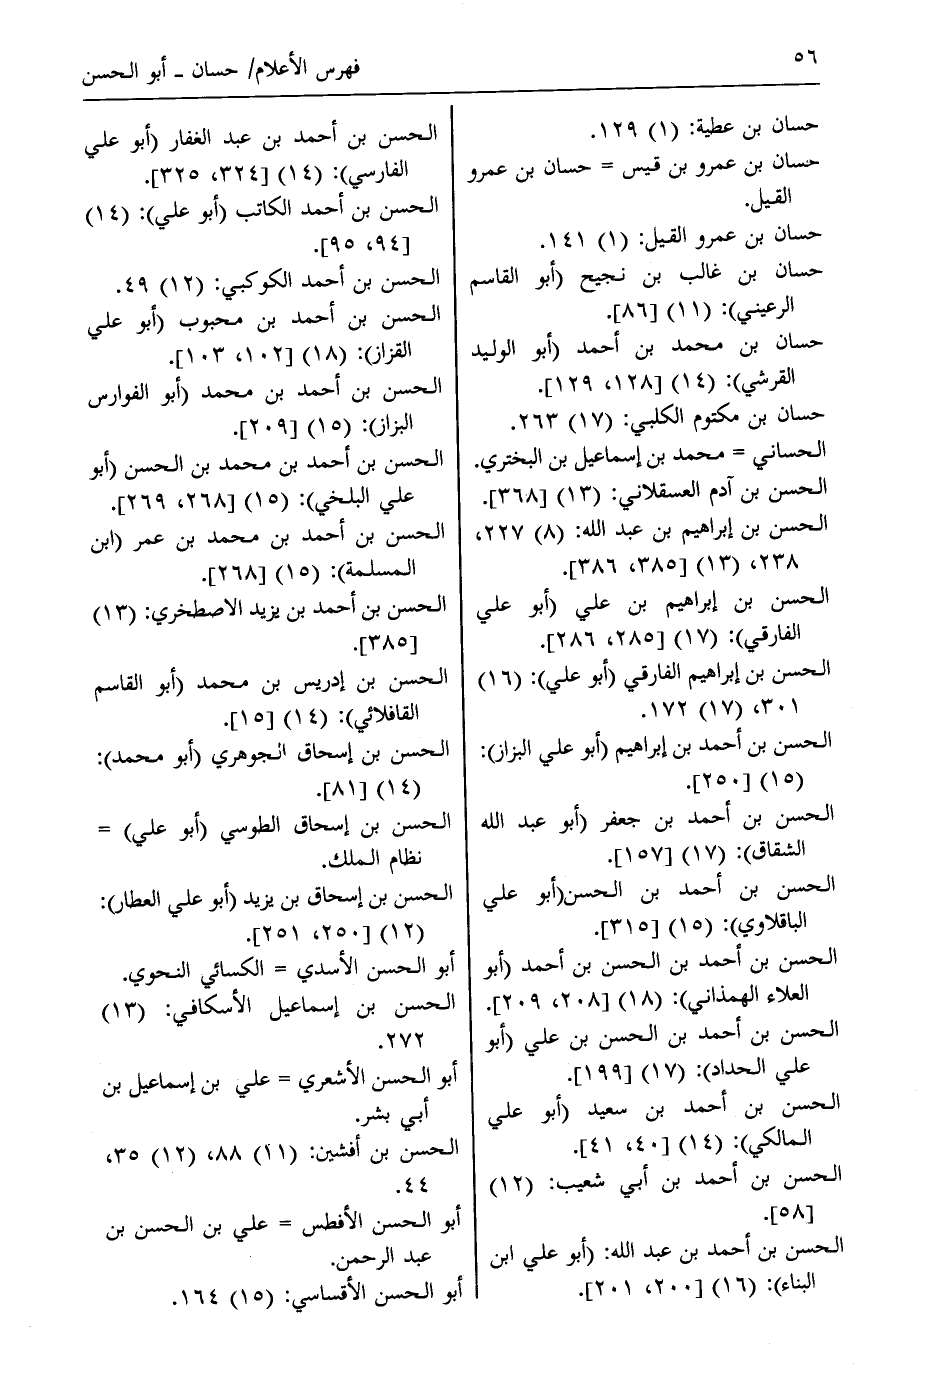 ٥٦
فهرس الأعلام/ حسان ـ أبو الحسن
حسان بن عطية: (١) ١٢٩.
حسان بن عمرو بن قيس = حسان بن عمرو
القيل.
حسان بن عمرو القيل: (١) ١٤١.
حسان بن غالب بن نجيح (أبو القاسم
الرعيني): (١١) [٨٦].
حسان بن محمد بن أحمد (أبو الوليد
القرشي): (١٤) [١٢٨، ١٢٩].
حسان بن مكتوم الكلبي: (١٧) ٢٦٣.
الحساني = محمد بن إسماعيل بن البختري.
الحسن بن آدم العسقلاني: (١٣) [٣٦٨].
الحسن بن إبراهيم بن عبد الله: (٨) ٢٢٧،
٢٣٨، (١٣) [٣٨٥، ٣٨٦].
الحسن بن إبراهيم بن علي (أبو علي
الفارقي): (١٧) [٢٨٥، ٢٨٦].
الحسن بن إبراهيم الفارقي (أبو علي): (١٦)
٣٠١، (١٧) ١٧٢.
الحسن بن أحمد بن إبراهيم (أبو علي البزاز):
(١٥) [٢٥٠].
الحسن بن أحمد بن جعفر (أبو عبد الله
الشقاق): (١٧) [١٥٧].
الحسن بن أحمد بن الحسن(أبو علي
الباقلاوي): (١٥) [٣١٥].
الحسن بن أحمد بن الحسن بن أحمد (أبو
العلاء الهمذاني): (١٨) [٢٠٨، ٢٠٩].
الحسن بن أحمد بن الحسن بن علي (أبو
علي الحداد): (١٧) [١٩٩].
الحسن بن أحمد بن سعيد (أبو علي
المالكي): (١٤) [٤٠، ٤١].
الحسن بن أحمد بن أبي شعيب: (١٢)
[٥٨].
الحسن بن أحمد بن عبد الله: (أبو علي ابن
البناء): (١٦) [٢٠٠، ٢٠١].
الحسن بن أحمد بن عبد الغفار (أبو علي
الفارسي): (١٤) [٣٢٤، ٣٢٥].
الحسن بن أحمد الكاتب (أبو علي): (١٤)
[٩٤، ٩٥].
الحسن بن أحمد الكوكبي: (١٢) ٤٩.
الحسن بن أحمد بن محبوب (أبو علي
القزاز): (١٨) [١٠٢، ١٠٣].
الحسن بن أحمد بن محمد (أبو الفوارس
البزاز): (١٥) [٢٠٩].
الحسن بن أحمد بن محمد بن الحسن (أبو
علي البلخي): (١٥) [٢٦٨، ٢٦٩].
الحسن بن أحمد بن محمد بن عمر (ابن
المسلمة): (١٥) [٢٦٨].
الحسن بن أحمد بن يزيد الاصطخري: (١٣)
[٣٨٥].
الحسن بن إدريس بن محمد (أبو القاسم
القافلائي): (١٤) [١٥].
الحسن بن إسحاق الجوهري (أبو محمد):
(١٤) [٨١].
الحسن بن إسحاق الطوسي (أبو علي) =
نظام الملك.
الحسن بن إسحاق بن يزيد (أبو علي العطار):
(١٢) [٢٥٠، ٢٥١].
أبو الحسن الأسدي = الكسائي النحوي.
الحسن بن إسماعيل الأسكافي: (١٣)
٢٧٢.
أبو الحسن الأشعري = علي بن إسماعيل بن
أبي بشر.
الحسن بن أفشين: (١١) ٨٨، (١٢) ٣٥،
٤٤.
أبو الحسن الأفطس = علي بن الحسن بن
عبد الرحمن.
أبو الحسن الأقساسي: (١٥) ١٦٤.